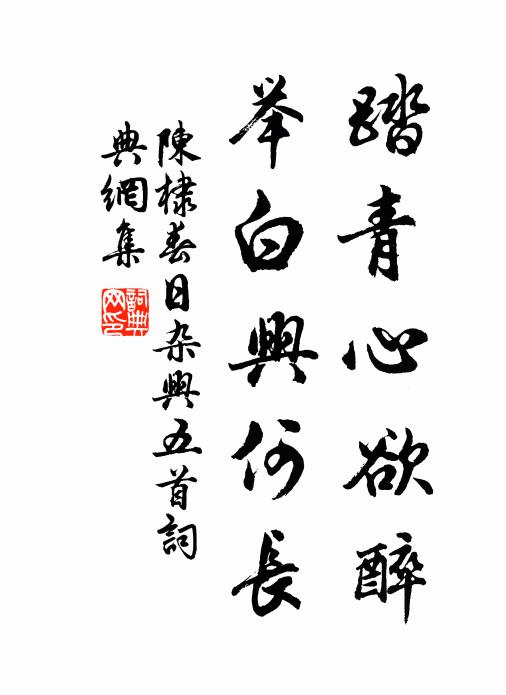 踏青心欲醉
举白興何長
陳棣春日杂興五首詞
典網集
詞典
网印